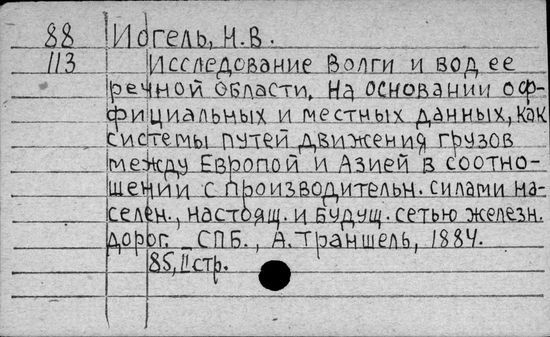 88 Иогель, Н.В.
113 Исследование Волги и вод ее
речной области, на основании оф-
фициальных и местных данных, как
системы путей движения грузов
между Европой и Азией в соотно-
шении с производительн. силами на-
селен., настоящ. и будущ. сетью железн.
дорог. СПБ., А. Траншель, 1884.
85, II стр.